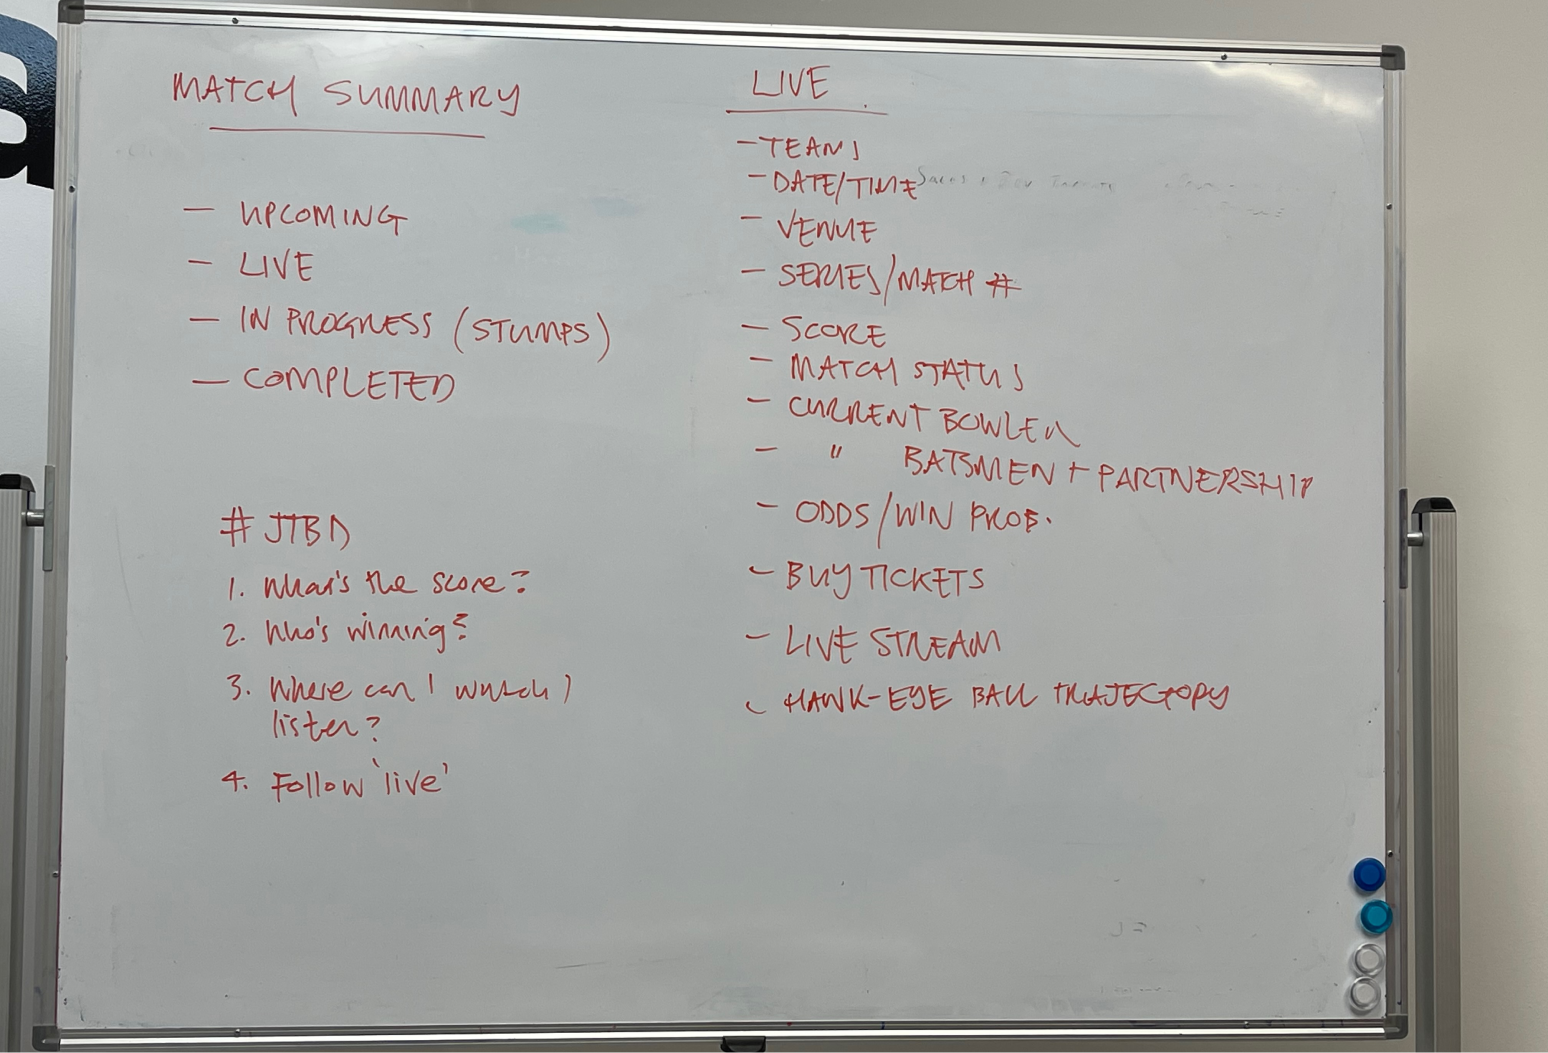 MATCH SUMMARY
— UPCOMING
— LIVE
— IN PROGRESS (STUMPS)
— COMPLETED
# JTBD
1. What's the score?
2. Who's winning?
3. Where can I watch /
listen?
4. Follow 'live'
LIVE
- TEAMS
- DATE/TIME
- VENUE
- SERIES/MATCH #
- SCORE
- MATCH STATUS
- CURRENT BOWLER
- " BATSMEN + PARTNERSHIP
- ODDS/WIN PROB.
- BUY TICKETS
- LIVE STREAM
- HAWK-EYE BALL TRAJECTORY